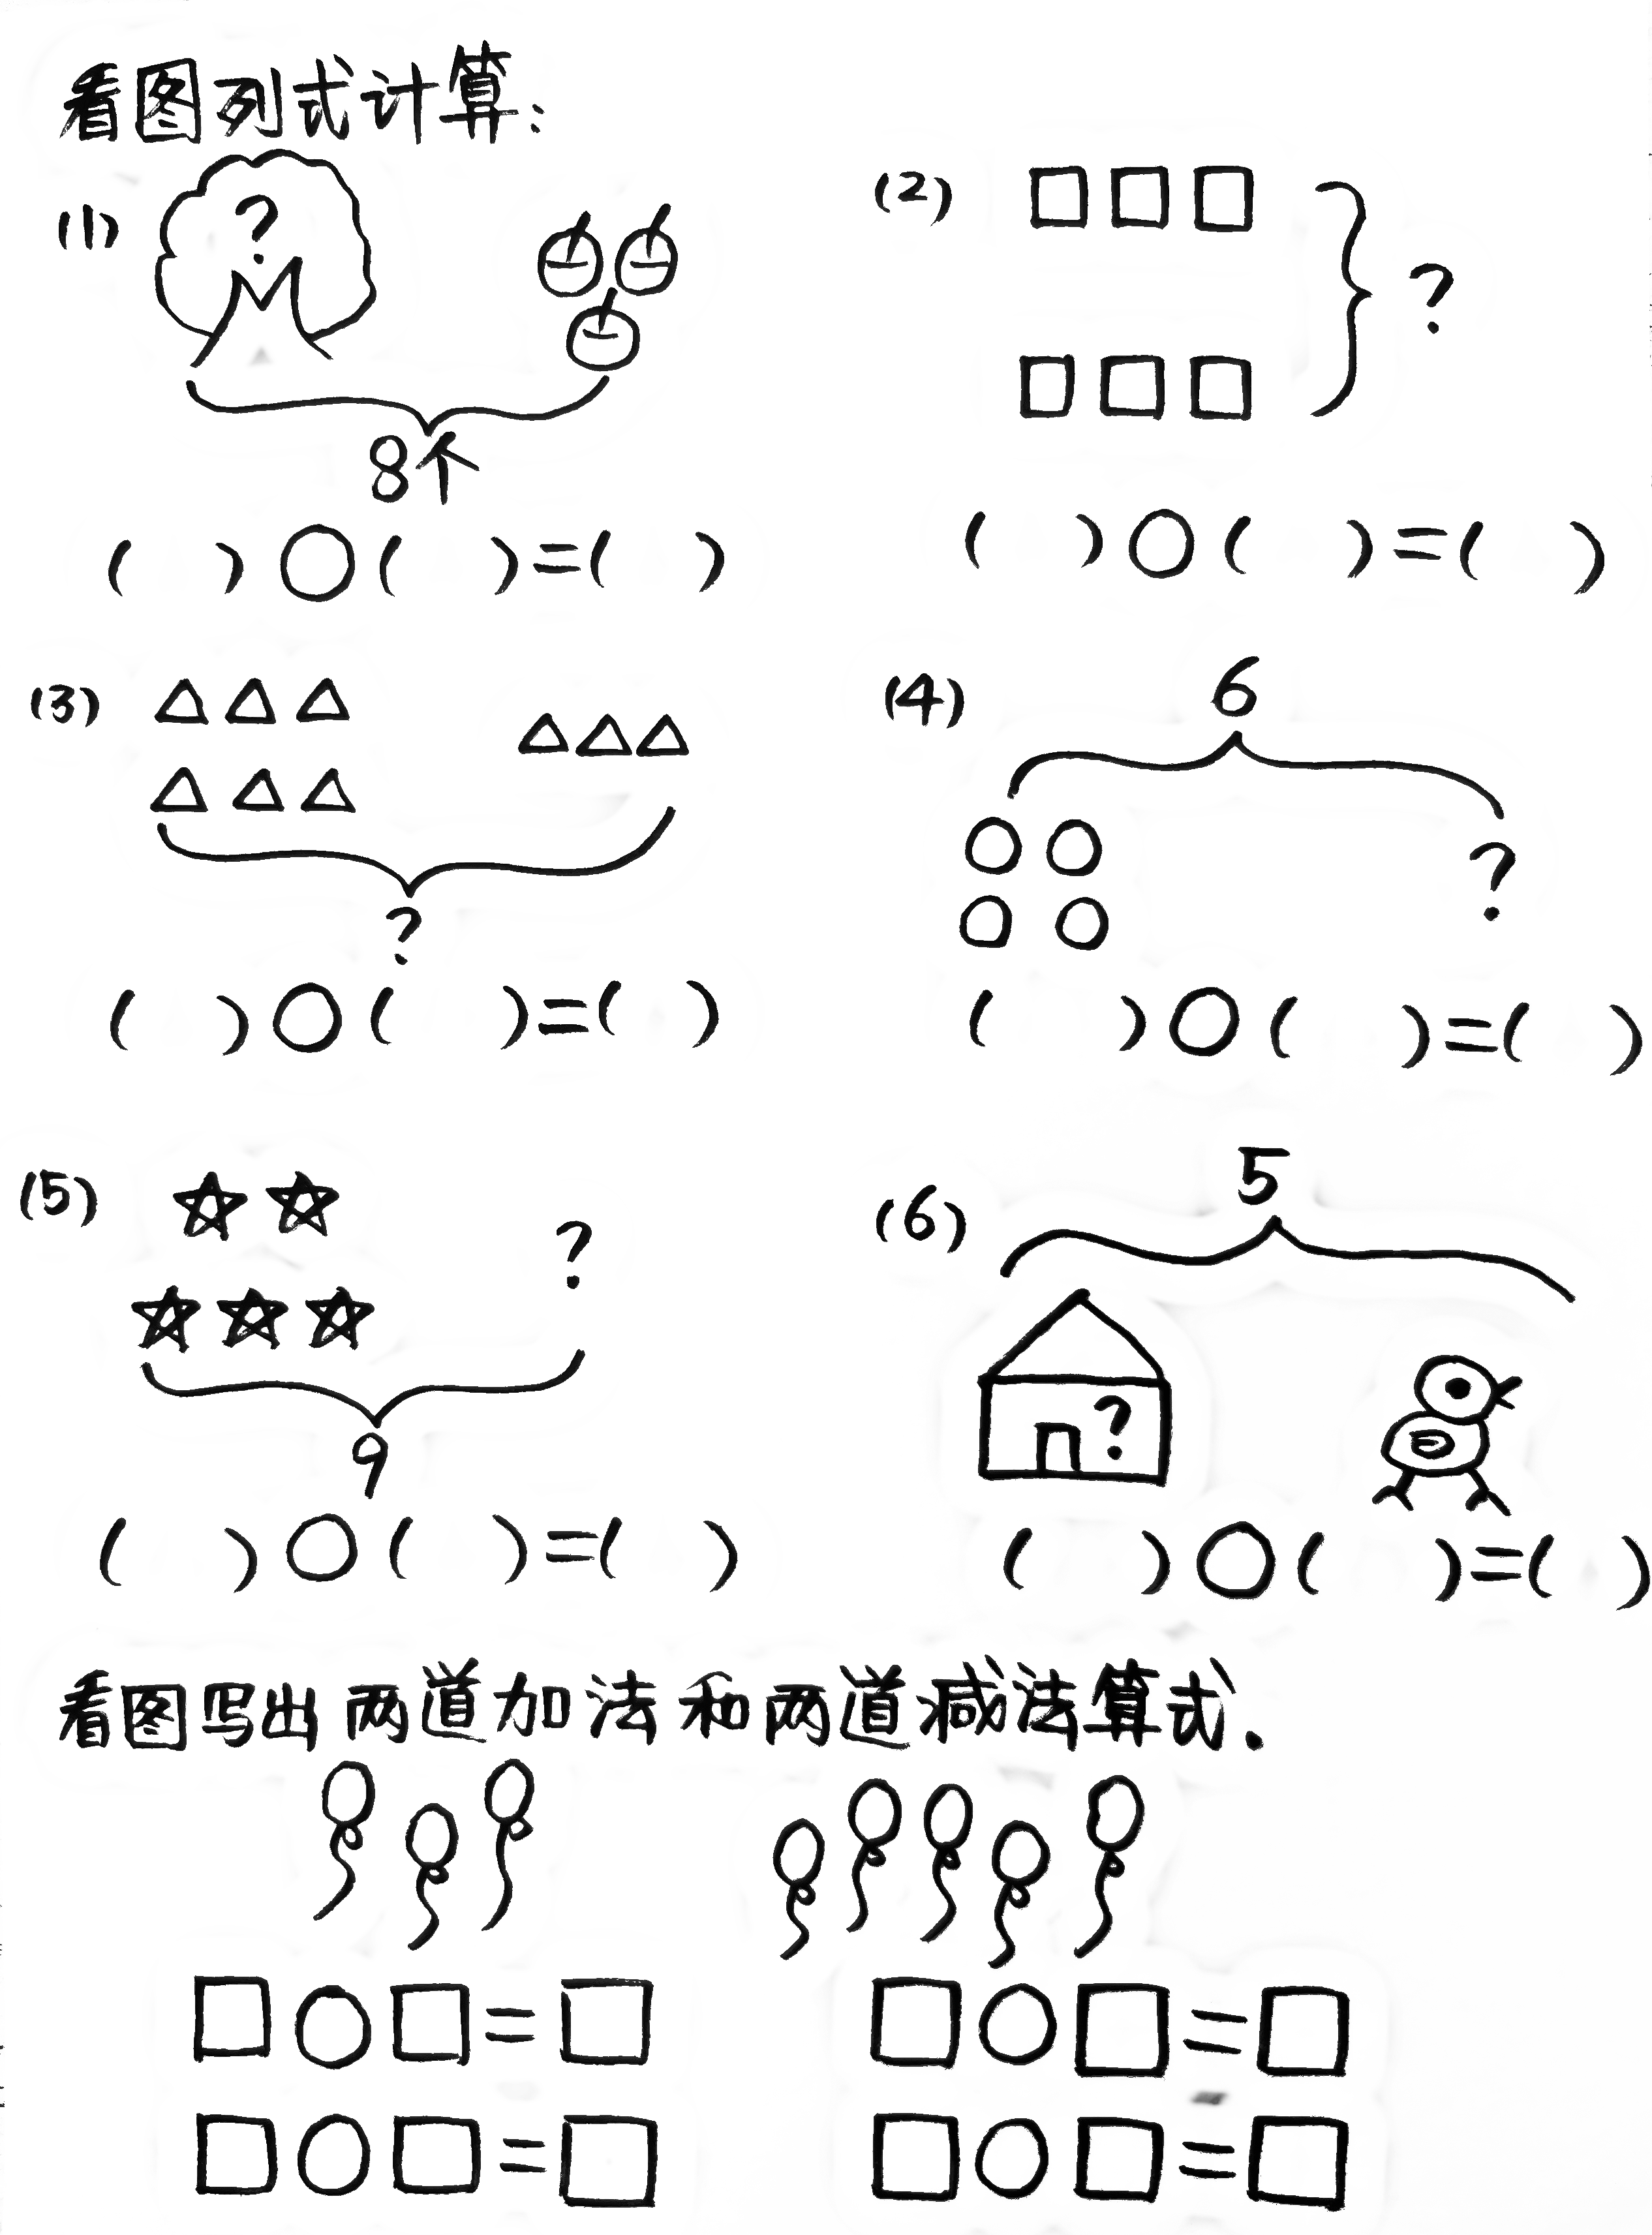 看图列式计算:
(1)
?
8个
( )○( )=( )
(2)
?
( )○( )=( )
(3)
?
( )○( )=( )
(4)
6
?
( )○( )=( )
(5)
?
9
( )○( )=( )
(6)
5
?
( )○( )=( )
看图写出两道加法和两道减法算式.
□○□=□
□○□=□
□○□=□
□○□=□